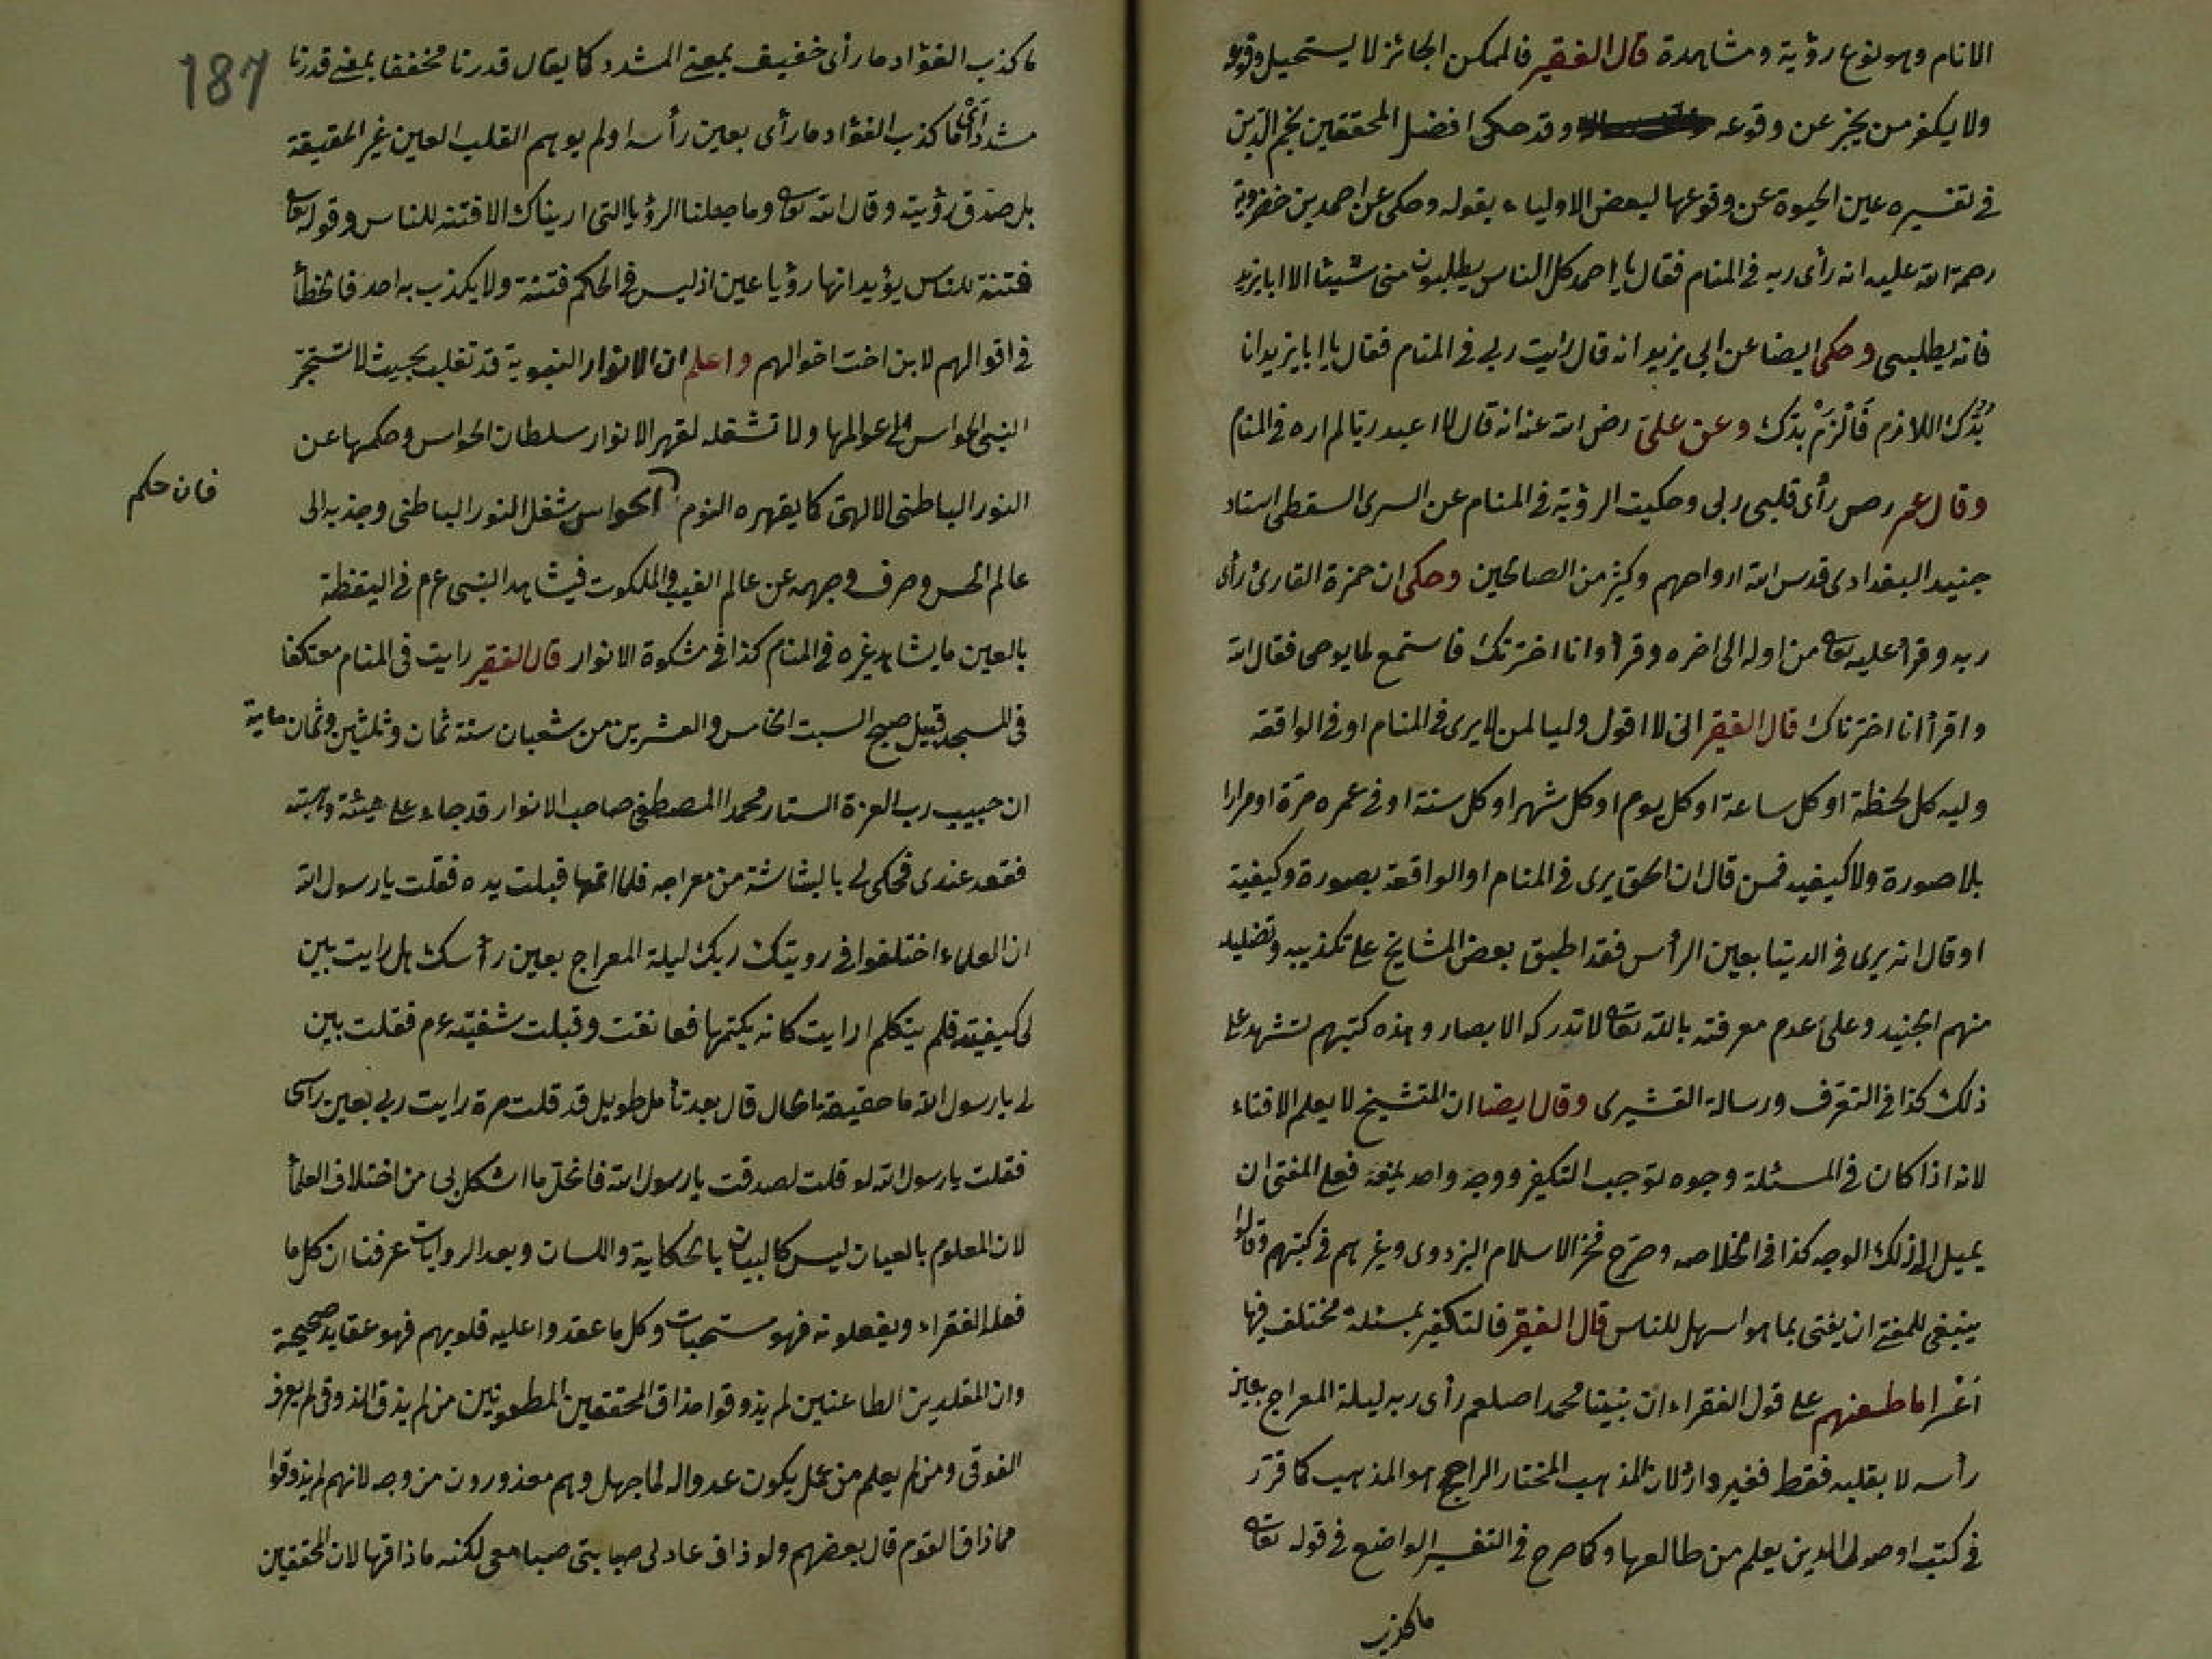 الانام وهو نوع رؤية ومشاهدة قال الفقير فالممكن الجائز لا يستحيل وقوعه
ولا يكفر من يخبر عن وقوعه وقد حكى افضل المحققين نجم الدين
في تفسيره عين الحيوة عن وقوعها لبعض الاولياء بقوله وحكى عن احمد بن خضرويه
رحمة الله عليه انه رأى ربه في المنام فقال يا احمد كل الناس يطلبون منى شيئا الا ابا يزيد
فانه يطلبنى وحكى ايضا عن ابى يزيد انه قال رايت ربى في المنام فقال يا ابا يزيد انا
بدّك اللازم فَالْزَمْ بدّك وعن علىّ رضى الله عنه انه قال لا اعبد ربا لم اره في المنام
وقال عمر رضى رأى قلبى ربى وحكيت الرؤية في المنام عن السرى السقطى استاد
جنيد البغدادى قدس الله ارواحهم وكثير من الصالحين وحكى ان حمزة القارئ رأى
ربه وقرأ عليه تعالى من اوله الى اخره وقرأ وانا اخترتك فاستمع لما يوحى فقال الله
واقرأ انا اخترناك قال الفقير انى لا اقول وليا لمن لا يرى في المنام او في الواقعة
وليه كل لحظة او كل ساعة او كل يوم او كل شهر او كل سنة او في عمره مرة او مرارا
بلا صورة ولا كيفية فمن قال ان الحق يرى في المنام او الواقعة بصورة وكيفية
او قال انه يرى في الدنيا بعين الرأس فقد اطبق بعض المشايخ على تكذيبه وتضليله
منهم الجنيد وعلى عدم معرفته بالله تعالى لا تدركه الابصار وهذه كتبهم تشهد على
ذلك كذا في التعرف ورسالة القشيرى وقال ايضا ان المتشيخ لا يعلم الافتاء
لانه اذا كان في المسئلة وجوه توجب التكفير ووجه واحد يمنعه فعلى المفتى ان
يميل الى ذلك الوجه كذا في الخلاصه وصرّح فخر الاسلام البزدوى وغيرهم في كتبهم وقالوا
ينبغى للمفتى ان يفتى بما هو اسهل للناس قال الفقير فالتكفير بمسئلة مختلف فيها
اما طعنهم على قول الفقراء ان نبينا محمدا صلعم رأى ربه ليلة المعراج بعين
رأسه لا بقلبه فقط فغير وارد لان المذهب المختار الراجح هو المذهب كما قرّر
في كتب اصول الدين يعلم من طالعها وكما صرح في التفسير الواضع في قوله تعالى
ما كذب
187
ما كذب الفؤاد ما رأى خفيف بمعنى المشدد كما يقال قدرنا مخففا بمعنى قدّرنا
مشددا أى ما كذب الفؤاد ما رأى بعين رأسه ولم يوهم القلب العين غير الحقيقة
بل صدق رؤيته وقال الله تعالى وما جعلنا الرؤيا التى اريناك الا فتنة للناس وقوله تعالى
فتنة للناس يؤيد انها رؤيا عين اذ ليس في الحكم فتنة ولا يكذب به احد فالخطأ
في اقوالهم لابن اخت اخوالهم واعلم ان الانوار النبوية قد تغلب بحيث لا تستجر
النبى الحواس الى عوالمها ولا تشغله لقهر الانوار سلطان الحواس وحكمها عن
النور الباطنى الالهى كما يقهره النوم الحواس شغل النور الباطنى وجذبه الى
فان حكم
عالم الحس وصرف وجهه عن عالم الغيب والملكوت فيشاهد النبى عم في اليقظة
بالعين ما يشاهد غيره في المنام كذا في مشكوة الانوار قال الفقير رايت في المنام معتكفا
في المسجد قبيل صبح السبت الخامس والعشرين من شعبان سنة ثمان وثلثين وثمان ماية
ان حبيب رب العزة الستار محمدا المصطفى صاحب الانوار قد جاء على هيئة
فقعد عندى فحكى لى بالبشاشة من معراجه فلما اتمها قبلت يده فقلت يا رسول الله
ان العلماء اختلفوا في رويتك ربك ليلة المعراج بعين رأسك هل رايت بين
لى كيفيته فلم يتكلم ارايت كانه يكتمها فعانقت وقبلت شفتيه عم فقلت بين
لى يا رسول الله ما حقيقة الحال قال بعد تأمل طويل قد قلت مرة رايت ربى بعين رأسى
فقلت يا رسول الله لو قلت لصدقت يا رسول الله فانحل ما اشكل بى من اختلاف العلما
لان المعلوم بالعيان ليس كالبيان بالحكاية واللسان وبعد الروايات عرفنا ان كل ما
فعله الفقراء ويفعلونه فهو مستحبات وكل ما عقدوا عليه قلوبهم فهو عقايد صحيحة
وان المقلدين الطاعنين لم يذوقوا مذاق المحققين المطعونين من لم يذق الذوق لم يعرف
الفوقى ومن لم يعلم من عمل يكون عدوا له لما جهل وهم معذورون من وجه لانهم لم يذوقوا
مما ذاق القوم قال بعضهم ولو ذاق عاذلى صبابتى صبا معى لكنه ما ذاقها لان المحققين